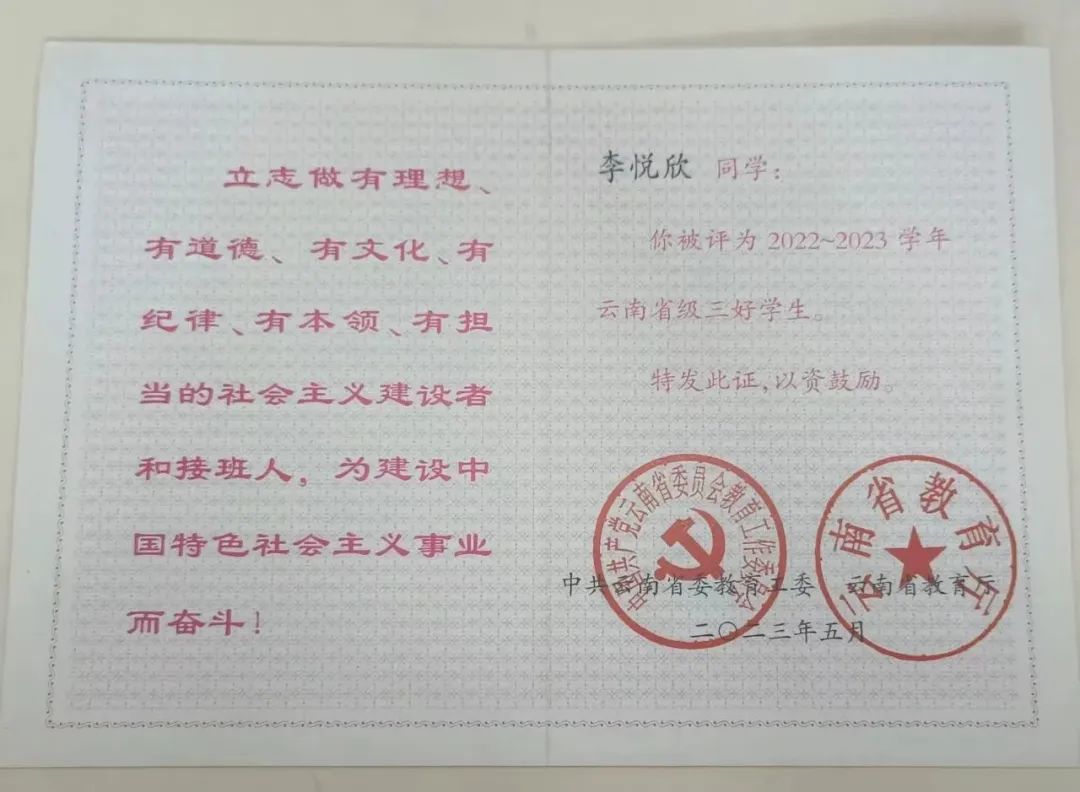 立志做有理想、
有道德、有文化、有
纪律、有本领、有担
当的社会主义建设者
和接班人，为建设中
国特色社会主义事业
而奋斗！
李悦欣 同学：
你被评为 2022~2023 学年
云南省级三好学生。
特发此证,以资鼓励。
中国共产党云南省委员会教育工作委员会
云南省教育厅
中共云南省委教育工委 云南省教育厅
二〇二三年五月